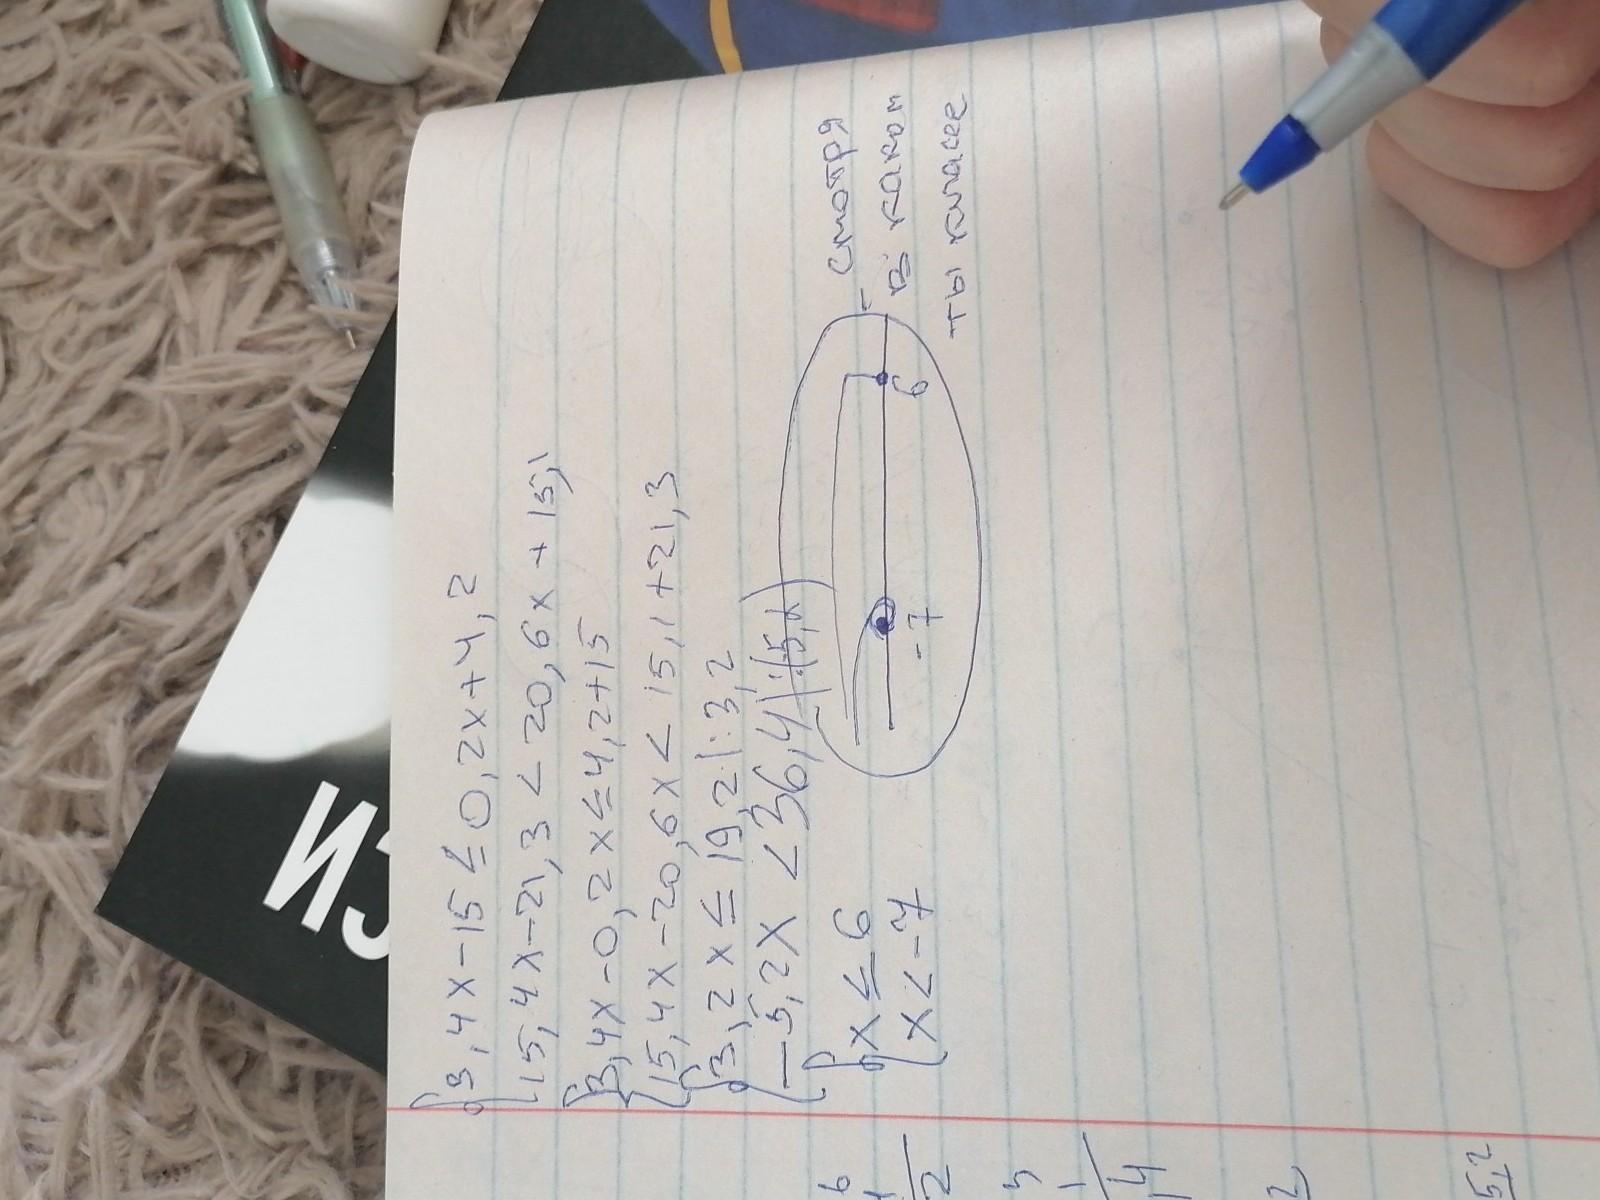 3,4x-15≤0,2x+4,2
15,4x-21,3<20,6x+15,1
3,4x-0,2x≤4,2+15
15,4x-20,6x<15,1+21,3
3,2x≤19,2|:3,2
-5,2x<36,4|:
x≤6
x<-7
-7 6
- смотря
в каком
ты классе